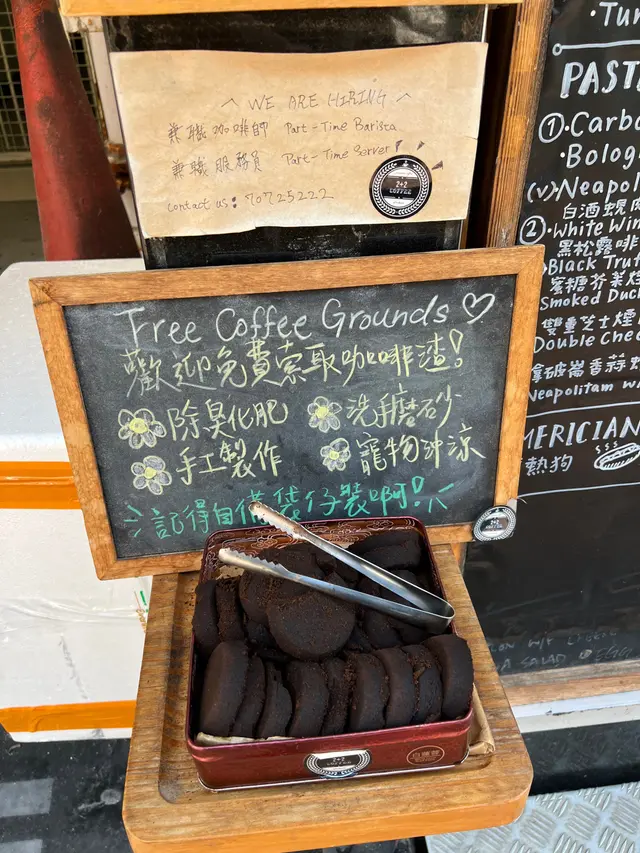 WE ARE HIRING
兼職咖啡師 Part-Time Barista
兼職服務員 Part-Time Server
contact us: 70725222
2+2
COFFEE
Free Coffee Grounds ♡
歡迎免費索取咖啡渣!
除臭化肥
洗手磨砂
手工製作
寵物沖涼
記得自備袋仔裝啊!
2+2
COFFEE
2+2
COFFEE
PAST
①·Carbo
·Bologn
(v)·Neapoli
白酒蜆肉
②·White Win
黑松露啡
·Black Truf
蜜糖芥末煙
Smoked Duck
雙重芝士煙
Double Chee
拿破崙香蒜
Neapolitam w
MERICIAN
熱狗